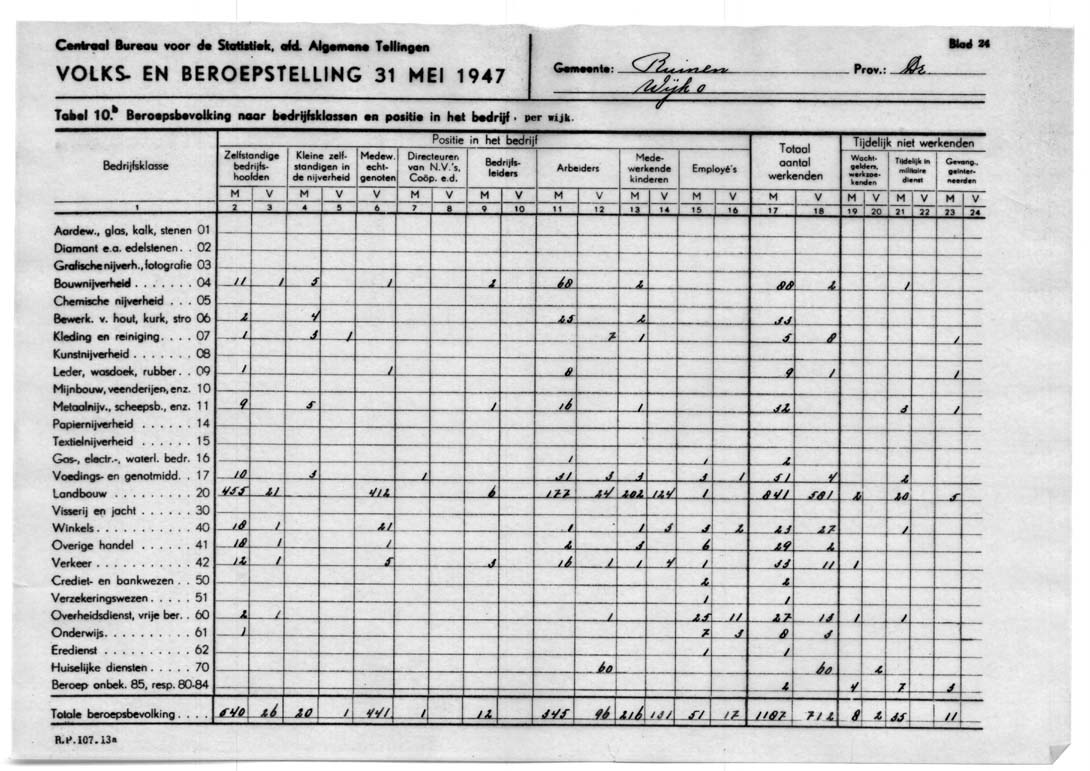 Centraal Bureau voor de Statistiek, afd. Algemene Tellingen
Blad 24
VOLKS- EN BEROEPSTELLING 31 MEI 1947
Gemeente: Ruinen Prov.: Dr.
Wijk o
Tabel 10.b Beroepsbevolking naar bedrijfsklassen en positie in het bedrijf · per wijk.
Bedrijfsklasse Positie in het bedrijf Totaal aantal werkenden Tijdelijk niet werkenden
Zelfstandige bedrijfs-hoofden Kleine zelf-standigen in de nijverheid Medew. echt-genoten Directeuren van N.V.'s, Coöp. e.d. Bedrijfs-leiders Arbeiders Mede-werkende kinderen Employé's Wacht-gelders, werkzoe-kenden Tijdelijk in militaire dienst Gevang., geïnter-neerden
M V M V V M V M V M V M V M V M V M V M V M V
1 2 3 4 5 6 7 8 9 10 11 12 13 14 15 16 17 18 19 20 21 22 23 24
Aardew., glas, kalk, stenen 01
Diamant e.a. edelstenen. . 02
Grafische nijverh., fotografie 03
Bouwnijverheid . . . . . . . 04 11 1 5 1 2 68 2 88 2 1
Chemische nijverheid . . . 05
Bewerk. v. hout, kurk, stro 06 2 4 25 2 33
Kleding en reiniging. . . . 07 1 3 1 7 1 5 8 1
Kunstnijverheid . . . . . . . 08
Leder, wasdoek, rubber. . 09 1 1 8 9 1 1
Mijnbouw, veenderijen, enz. 10
Metaalnijv., scheepsb., enz. 11 9 5 1 16 1 32 3 1
Papiernijverheid . . . . . . 14
Textielnijverheid . . . . . . 15
Gas-, electr.-, waterl. bedr. 16 1 1 2
Voedings- en genotmidd. . 17 10 3 1 31 3 3 3 1 51 4 2
Landbouw . . . . . . . . . 20 455 21 412 6 177 24 202 124 1 841 581 2 20 5
Visserij en jacht . . . . . . 30
Winkels. . . . . . . . . . . 40 18 1 21 1 1 3 3 2 23 27 1
Overige handel . . . . . . 41 18 1 1 2 3 6 29 2
Verkeer . . . . . . . . . . . 42 12 1 5 3 16 1 1 4 1 33 11 1
Crediet- en bankwezen . . 50 2 2
Verzekeringswezen . . . . . 51 1 1
Overheidsdienst, vrije ber. . 60 2 1 1 25 11 27 13 1 1
Onderwijs. . . . . . . . . . 61 1 7 3 8 3
Eredienst . . . . . . . . . . 62 1 1
Huiselijke diensten . . . . . 70 60 60 2
Beroep onbek. 85, resp. 80-84 2 4 7 3
Totale beroepsbevolking. . . . 540 26 20 1 441 1 12 345 96 216 131 51 17 1187 712 8 2 35 11
R.P.107.13a